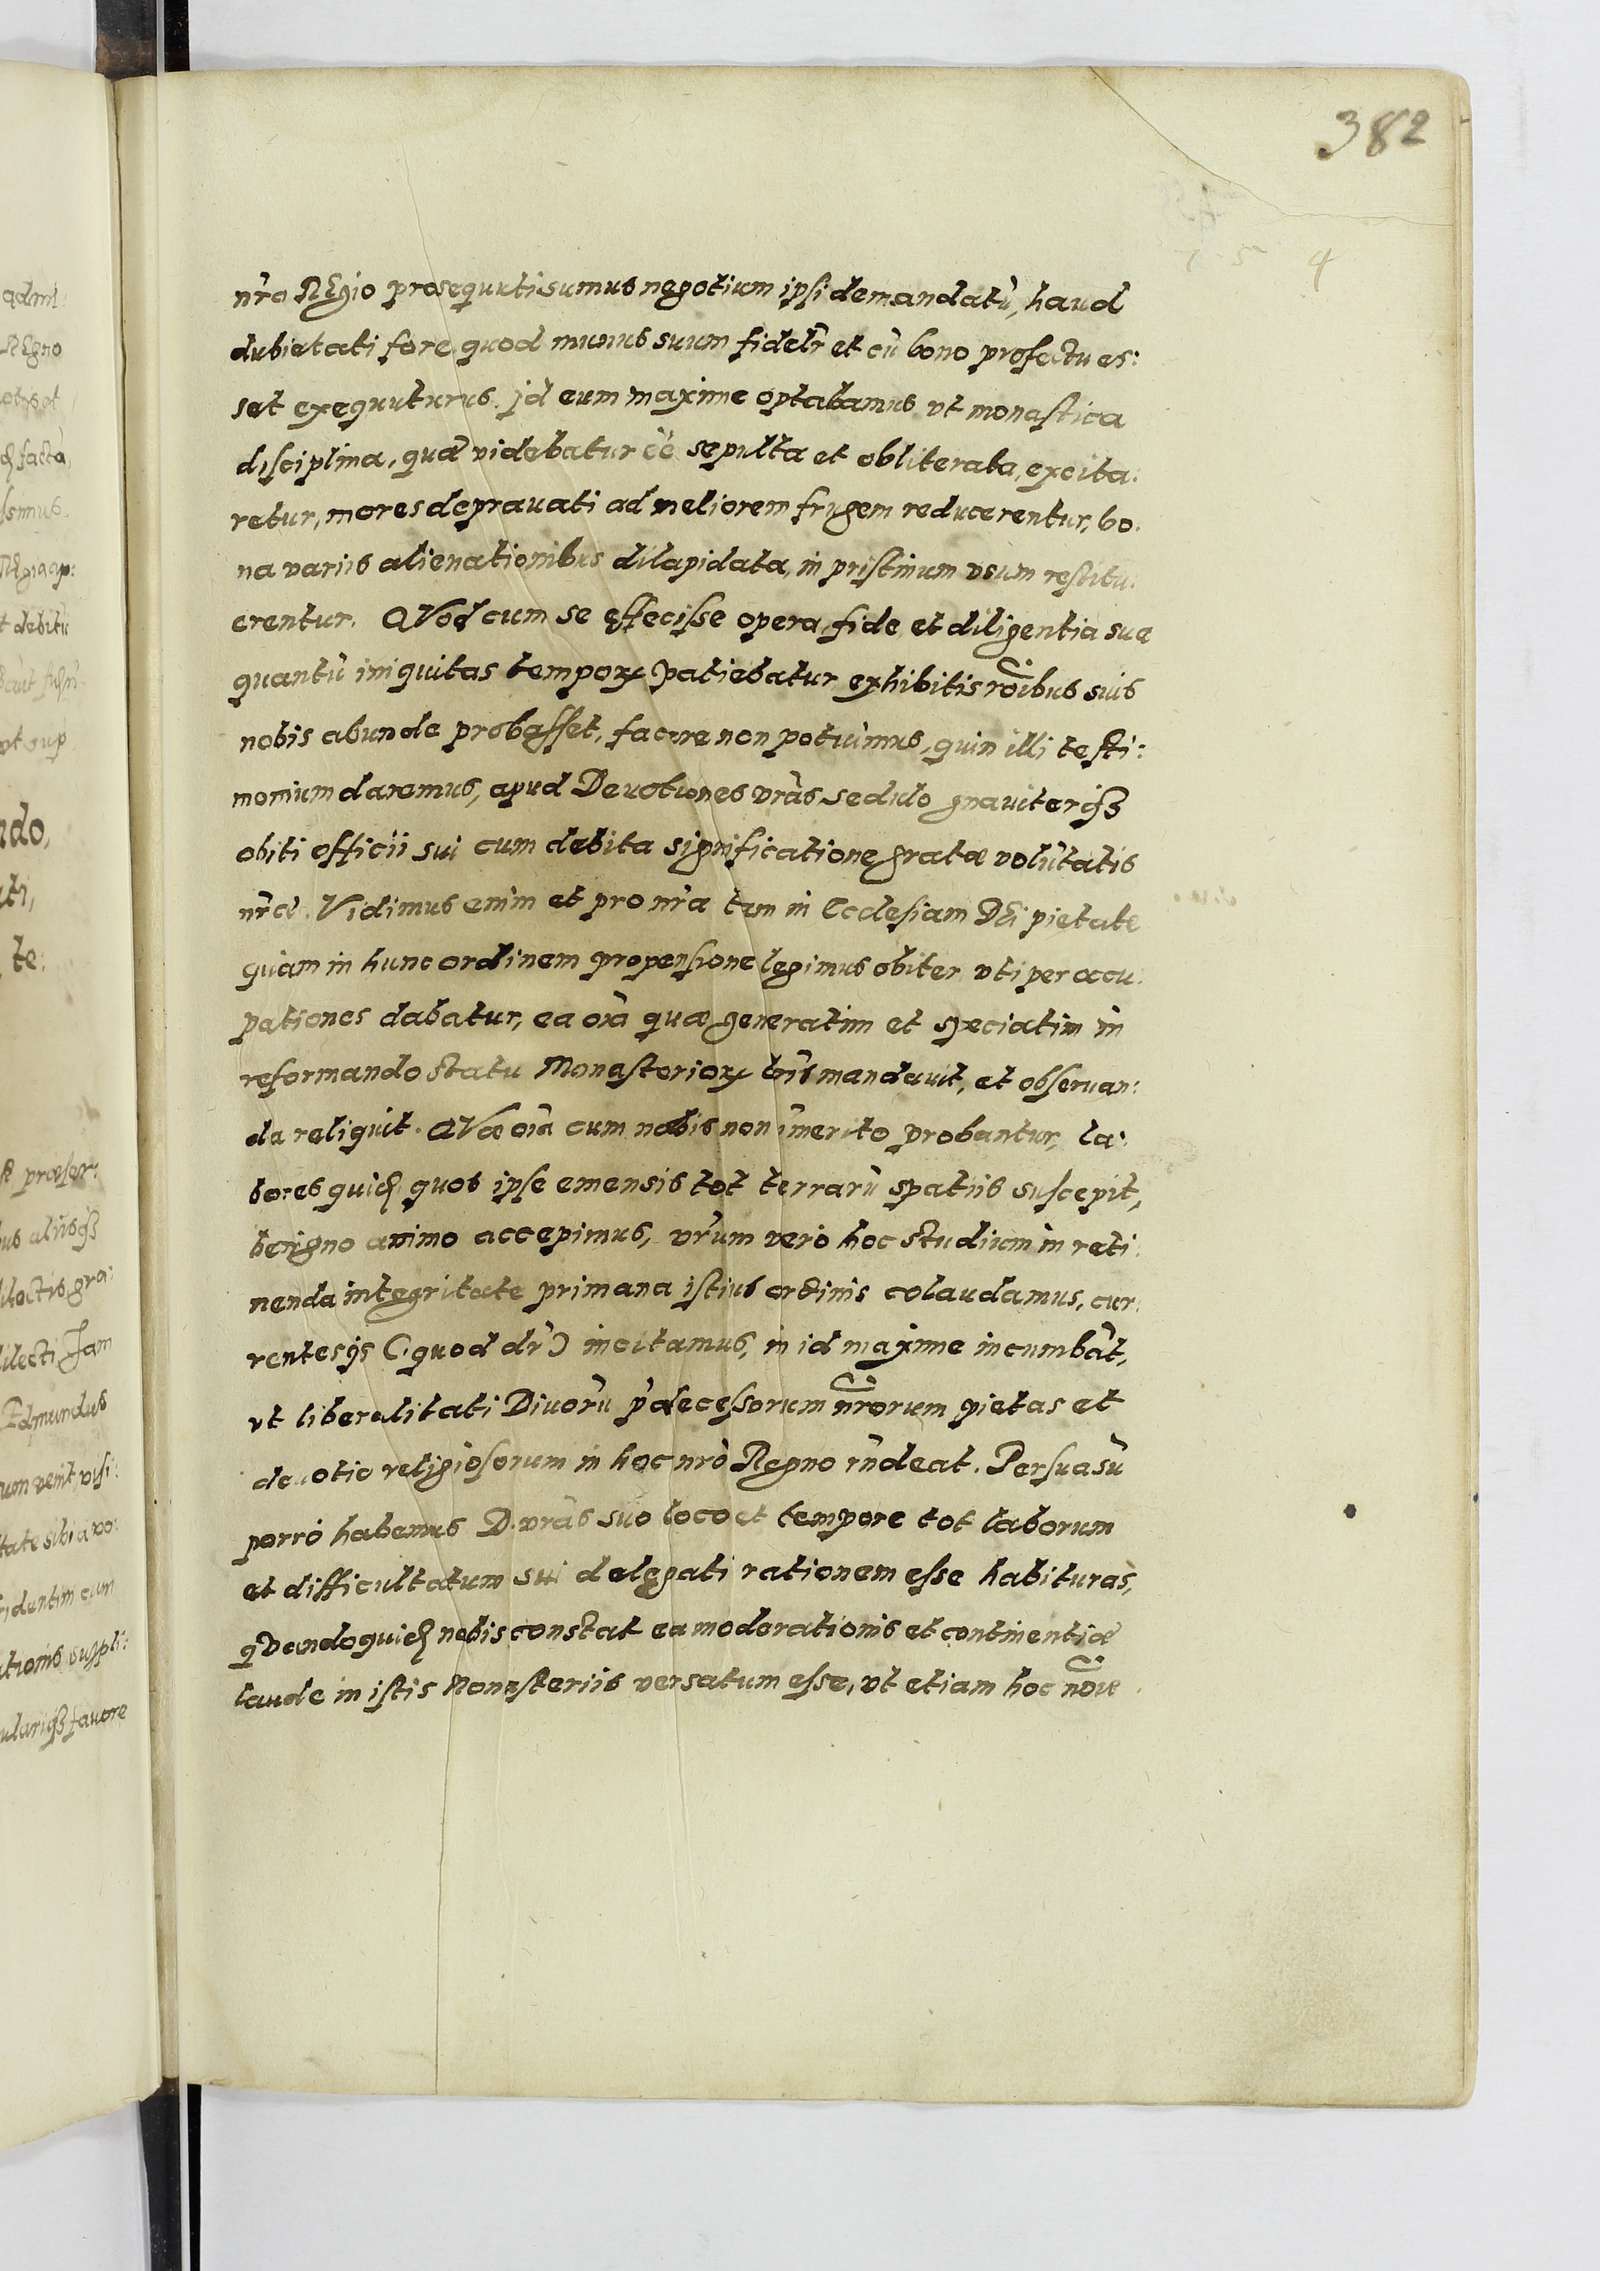 382
7 5 4
nr̃o REgio prosequuti sumus negotium ipsi demandatũ, haud
dubietati fore quod munus suum fidelr̃ et cũ bono profectu es:
set exequuturus. jd eum maxime optabamus vt monastica
disciplina, quæ videbatur eẽ sepulta et obliterata, excita:
retur, mores deprauati ad meliorem frugem reducerentur, bo:
na variis alienationibus dilapidata, in pristinum vsum restitu:
erentur. QVod cum se effecisse opera, fide et diligentia sua
quantũ iniquitas temporꝝ patiebatur exhibitis rõnibus suis
nobis abunde probasset, facere non potuimus, quin illi testi:
monium daremus, apud Deuotiones vrãs sedulo gnauiterqȝ
obiti officii sui cum debita significatione gratæ volũtatis
nr̃æ. Vidimus enim et pro nr̃a tum in Ecclesiam DEi pietate
quam in hunc ordinem propensione legimus obiter vti per occu:
pationes dabatur, ea oĩa quæ generatim et speciatim in
reformando statu Monasteriorꝝ mandauit, et obseruan:
da reliquit. QVæ oĩa cum nobis non ĩmerito probantur, la:
bores quidẽ quos ipse emensis tot terrarũ spatiis suscepit,
benigno animo accepimus, vr̃um vero hoc studium in reti:
nenda integritate primæua istius ordinis colaudamus, cur:
rentesqȝ (quod dr̃) incitamus, in id maxime incumbãt,
vt liberalitati Diuorũ p̃decessorum nr̃orum pietas et
deuotio religiosorum in hoc nr̃o Regno rñdeat. Persuasũ
porro habemus D. vrãs suo loco et tempore tot laborum
et difficultatum sui delegati rationem esse habituras,
quandoquidẽ nobis constat ea moderationis et continentiæ
laude in istis Monasteriis versatum esse, vt etiam hoc noĩe